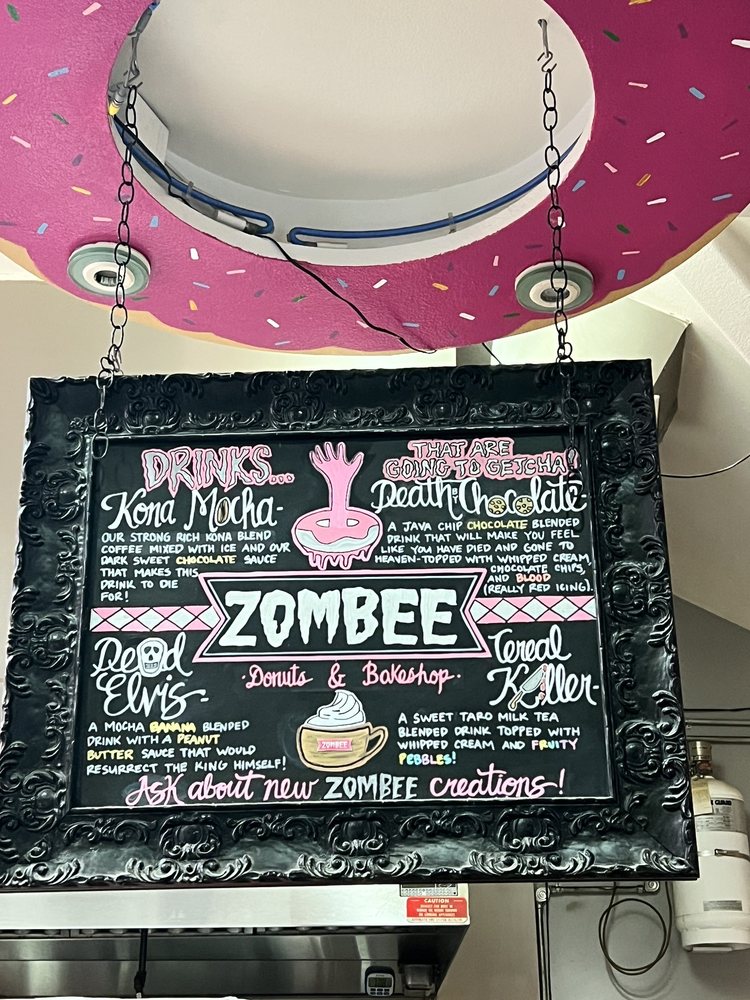 DRINKS...
THAT ARE
GOING TO GETCHA!
Kona Mocha-
OUR STRONG RICH KONA BLEND
COFFEE MIXED WITH ICE AND OUR
DARK SWEET CHOCOLATE SAUCE
THAT MAKES THIS
DRINK TO DIE
FOR!
Death BY Chocolate-
A JAVA CHIP CHOCOLATE BLENDED
DRINK THAT WILL MAKE YOU FEEL
LIKE YOU HAVE DIED AND GONE TO
HEAVEN-TOPPED WITH WHIPPED CREAM,
CHOCOLATE CHIPS,
AND BLOOD
(REALLY RED ICING).
ZOMBEE
Donuts & Bakeshop.
Dead
Elvis-
A MOCHA BANANA BLENDED
DRINK WITH A PEANUT
BUTTER SAUCE THAT WOULD
RESURRECT THE KING HIMSELF!
ZOMBEE
Cereal
Killer-
A SWEET TARO MILK TEA
BLENDED DRINK TOPPED WITH
WHIPPED CREAM AND FRUITY
PEBBLES!
Ask about new ZOMBEE creations!
CAUTION